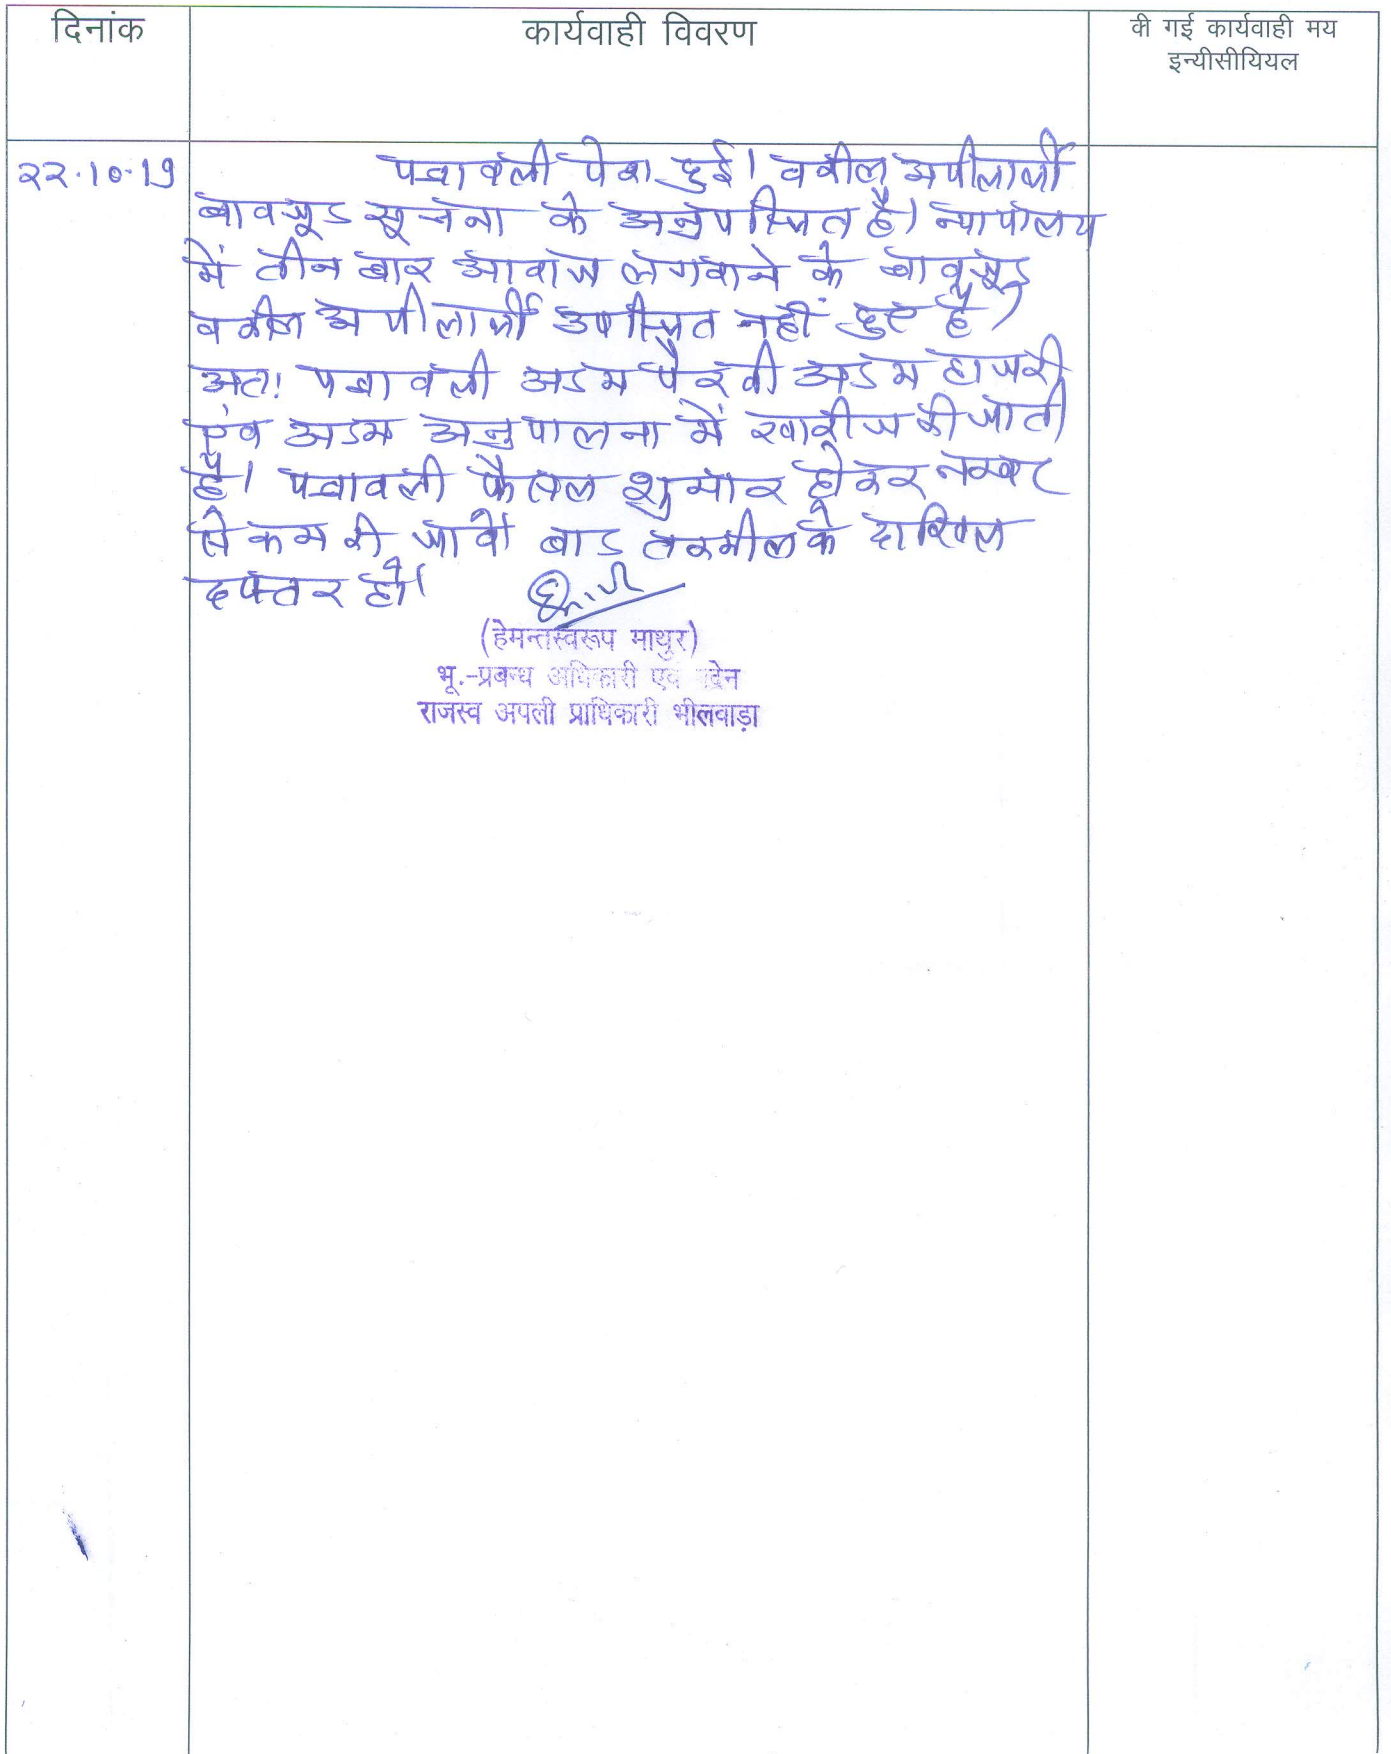 दिनांक
कार्यवाही विवरण
की गई कार्यवाही मय
इन्यीसीयियल
२२.10.19
पत्रावली पेश हुई। वकील अपीलार्थी
बावजूद सूचना के अनुपस्थित है। न्यायालय
में तीन बार आवाज लगवाने के बावजूद
वकील अपीलार्थी उपस्थित नहीं हुए है।
अतः पत्रावली अदम पैरवी अदम हाजरी
एंव अदम अनुपालना में खारीज की जाती
है। पत्रावली फैसल शुमार होकर नम्बर
से कम की जावे। बाद तकमील के दाखिल
दफ्तर हो।
(हेमन्तस्वरूप माथुर)
भू.-प्रबन्ध अधिकारी एवं पदेन
राजस्व अपली प्राधिकारी भीलवाड़ा